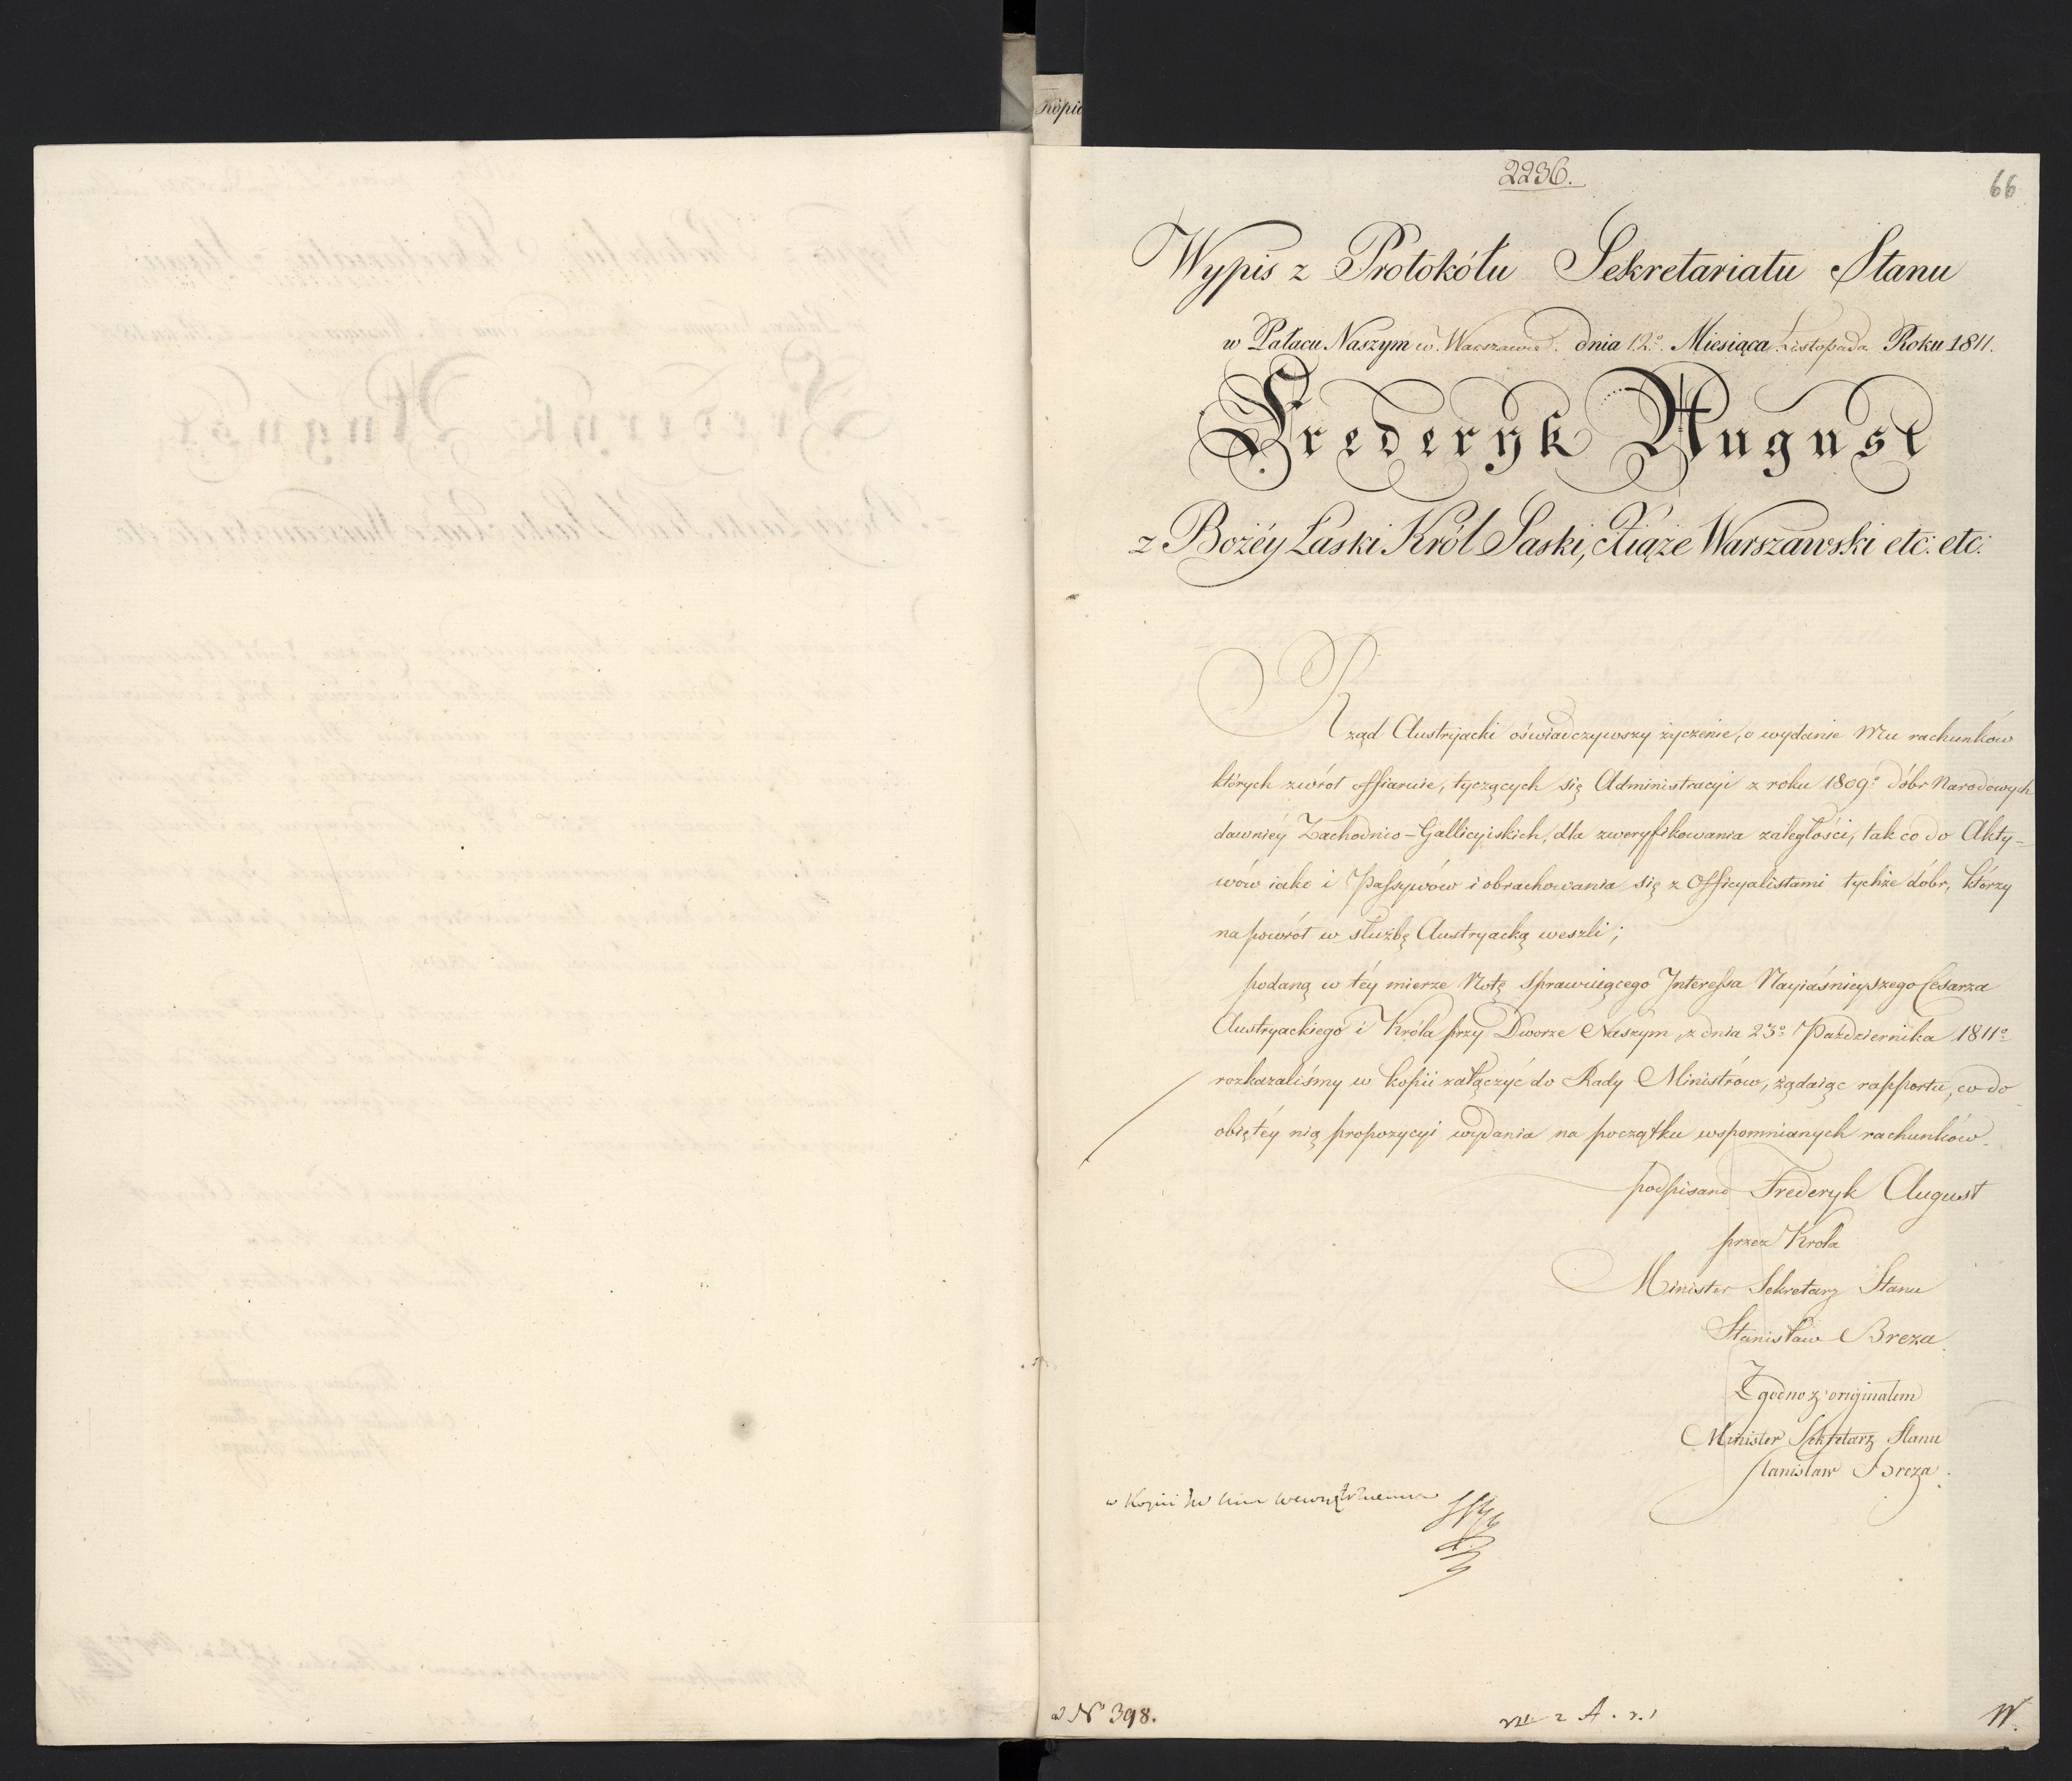 Kopie
2236.
66
Wypis z Protokółu Sekretariatu Stanu
w Pałacu Naszym w Warszawie. dnia 12º. Miesiąca Listopada Roku 1811.
Frederyk August
z Bożéy Łaski Król Saski, Xiąże Warszawski etc: etc:
Rząd Austryjacki oświadczywszy życzenie, o wydanie Mu rachunków
których zwrót offiaruie, tyczących się Administracyi z roku 1809º dóbr Narodowych
dawniéy Zachodnio-Gallicyiskich, dla zweryfikowania zaległości, tak co do Akty-
wów iako i Passywów i obrachowania się z Officyalistami tychże dóbr, którzy
na powrót w służbę Austryacką weszli;
podaną w téy mierze Notę sprawuiącego Interessa Nayiaśnieyszego Cesarza
Austryackiego i Króla przy Dworze Naszym, z dnia 23º Października 1811º
rozkazaliśmy w kopii załączyć do Rady Ministrów, żądaiąc rapportu, co do
obiętéy nią propozycyi wydania na początku wspomnianych rachunków.
podpisano Frederyk August
przez Króla
Minister Sekretarz Stanu
Stanisław Breza.
Zgodno z originałem
Minister Sekretarz Stanu
Stanisław Breza.
w Kopii
Nº 398.
W.